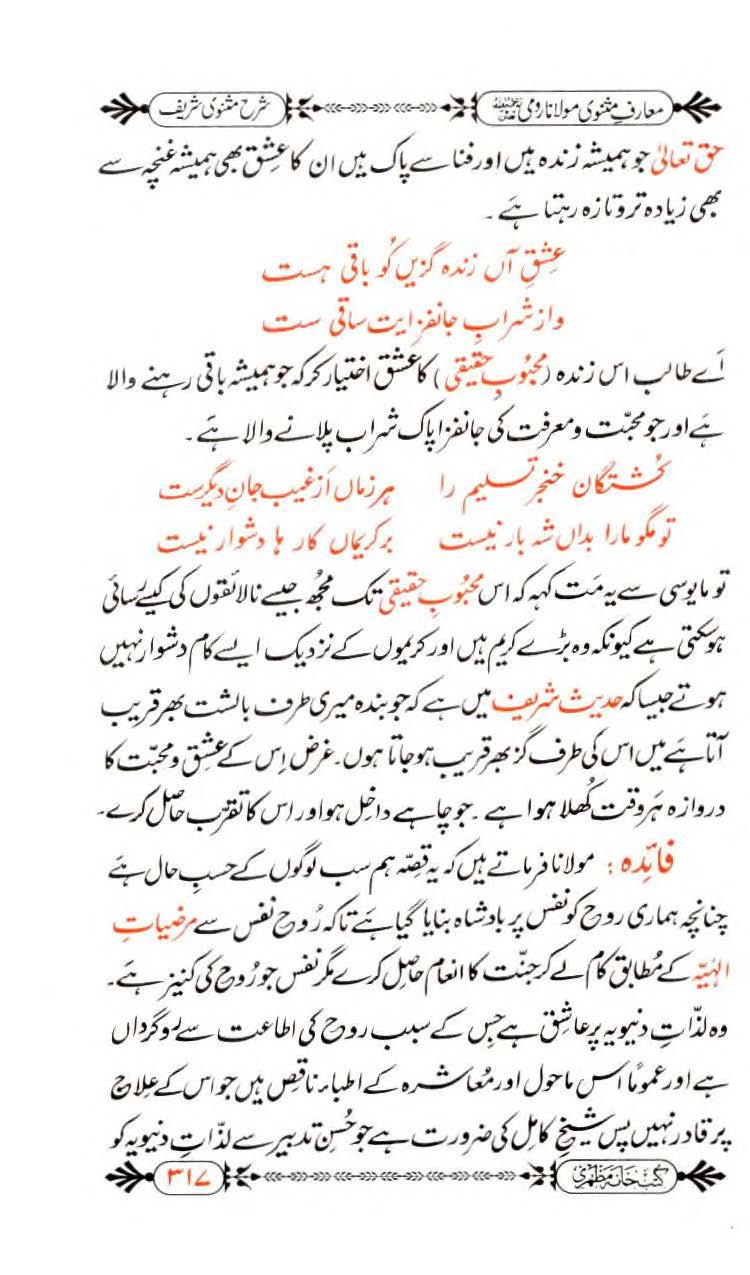 معارفِ مثنوی مولانا رومی رحمۃ اللہ علیہ
شرح مثنوی شریف
حق تعالیٰ جو ہمیشہ زندہ ہیں اور فنا سے پاک ہیں ان کا عِشق بھی ہمیشہ غنچہ سے
بھی زیادہ تر و تازہ رہتا ہَے ۔
عِشقِ آں زندہ گزیں کُو باقی ہست
واز شرابِ جانفزایت ساقی ست
اَے طالب اس زندہ (محبوبِ حقیقی) کا عشق اختیار کر کہ جو ہمیشہ باقی رہنے والا
ہَے اور جو محبّت و معرفت کی جانفزا پاک شراب پلانے والا ہَے ۔
کُشتگان خنجرِ تسلیم را ہر زماں اَز غیب جانِ دیگرست
تو مگو مارا بداں شہ بار نیست بر کریماں کار ہا دشوار نیست
تو مایوسی سے یہ مَت کہہ کہ اس محبُوبِ حقیقی تک مجُھ جیسے نالائقوں کی کیسے رسائی
ہوسکتی ہے کیونکہ وہ بڑے کریم ہیں اور کریموں کے نزدیک ایسے کام دشوار نہیں
ہوتے جیسا کہ حدیث شریف میں ہے کہ جو بندہ میری طرف بالشت بھر قریب
آتا ہَے میں اس کی طرف گز بھر قریب ہوجاتا ہوں۔ غرض اِس کے عشق و محبّت کا
دروازہ ہَر وقت کُھلا ہوا ہے ۔ جو چاہے داخِل ہو اور اس کا تقرّب حاصِل کرے۔
فائِدہ : مولانا فرماتے ہیں کہ یہ قِصّہ ہم سب لوگوں کے حسبِ حال ہَے
چنانچہ ہماری روح کو نفس پر بادشاہ بنایا گیا ہَے تاکہ رُوح نفس سے مرضیاتِ
الہٰیّہ کے مُطابق کام لے کر جنّت کا انعام حاصِل کرے مگر نفس جو رُوح کی کنیز ہے۔
وہ لذّاتِ دنیویہ پر عاشِق ہے جِس کے سبب روح کی اطاعت سے رُوگرداں
ہے اور عموماً اس ماحول اور مُعاشرہ کے اطباء ناقِص ہیں جو اس کے عِلاج
پر قادر نہیں پس شیخِ کامِل کی ضرورت ہے جو حُسنِ تدبیر سے لذّاتِ دنیویہ کو
کتب خانہ مظہری
۳۱۷